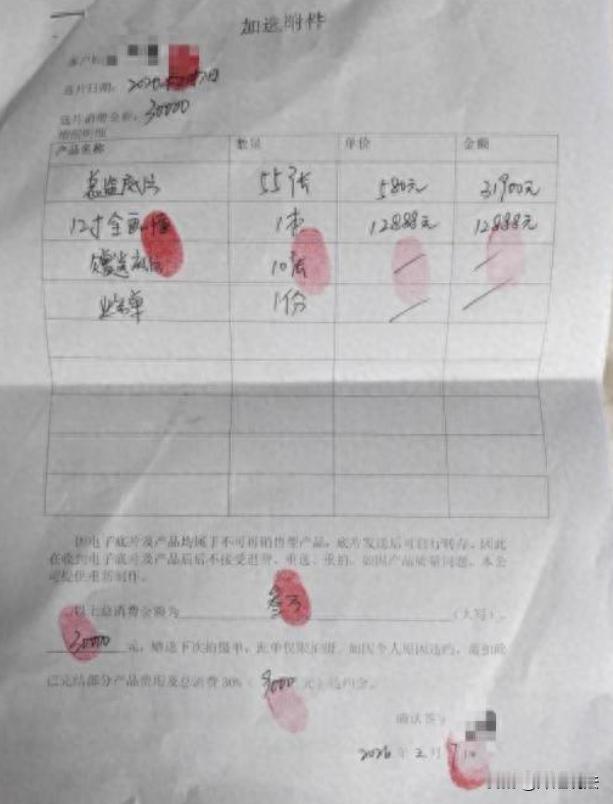 加选附件
客户姓名
选片日期：
选片消费金额：30000
增加明细
产品名称 数量 单价 金额
总监底片 55张 580元 31900元
12寸全画册 1本 12888元 12888元
底片 10张
1份
因电子底片及产品均属于不可再销售型产品，底片发送后可自行转存，因此
在收到电子底片及产品后后不接受退货、重选、重拍。如因产品质量问题，本公
司提供重新制作。
以上总消费金额为 叁万 （大写），
30000 元，赠送下次拍摄单，此单仅限加册。如因个人原因违约，需扣除
已完结部分产品费用及总消费30%（9000元）违约金。
确认签字
2026年2月7日